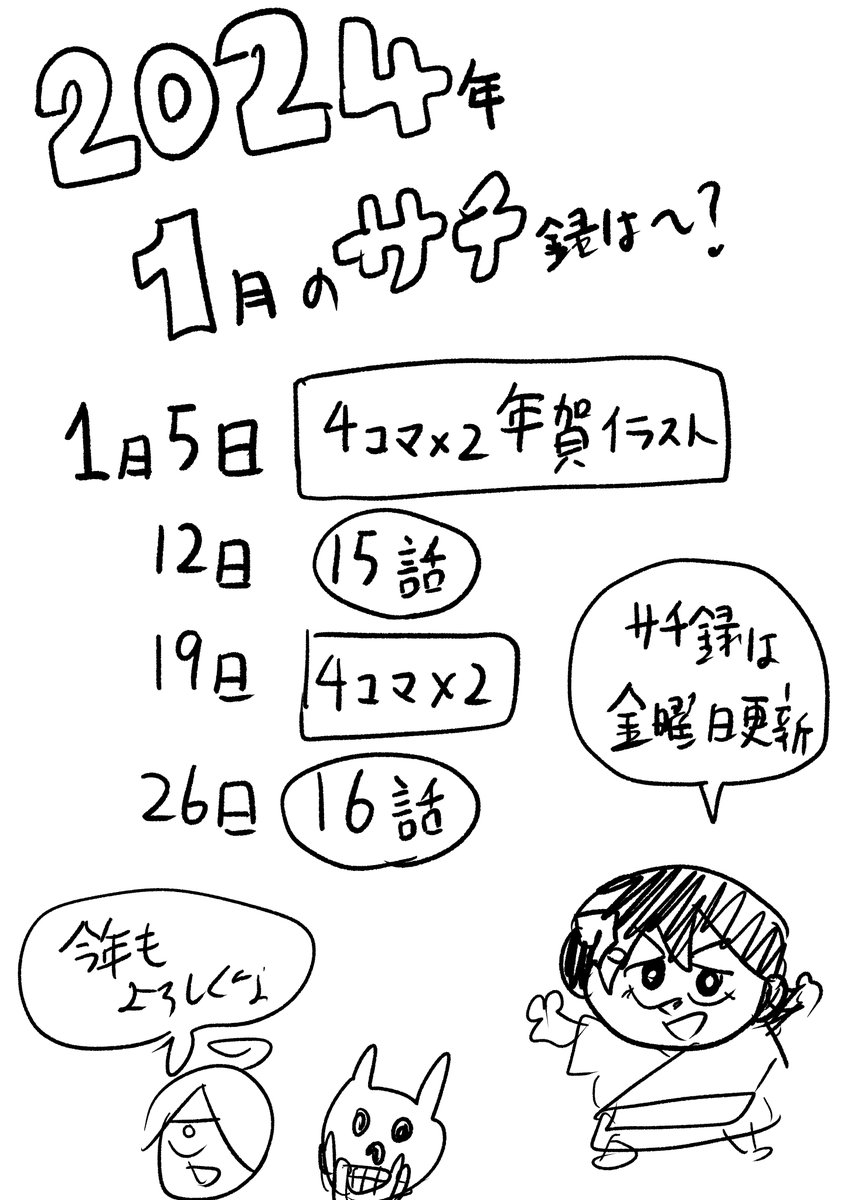 2024年
1月のサチ録は〜?
1月5日 4コマ×2 年賀イラスト
12日 15話
19日 4コマ×2
26日 16話
サチ録は
金曜日更新
今年も
よろしくな